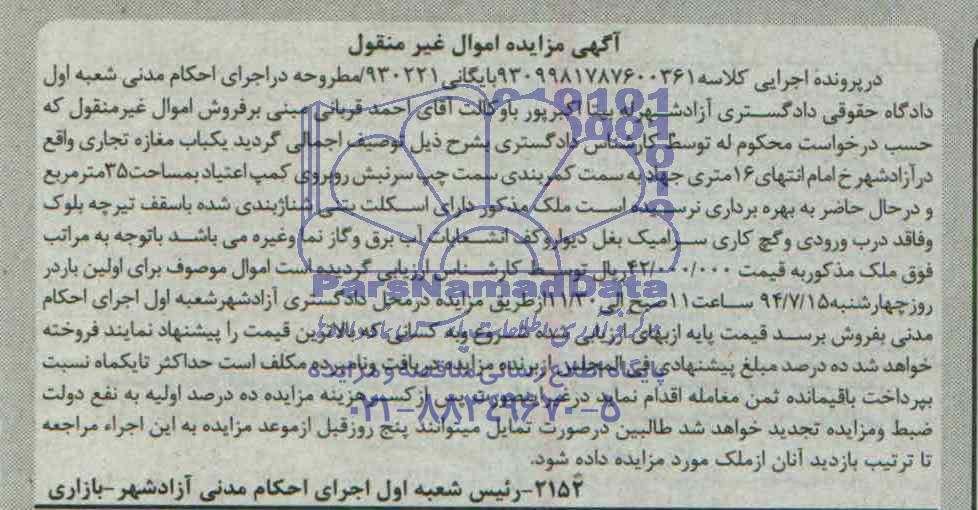 آگهی مزایده اموال غیر منقول
درپرونده اجرایی کلاسه ۹۳۰۹۹۸۱۷۸۷۶۰۰۳۶۱بایگانی۹۳۰۲۲۱/مطروحه دراجرای احکام مدنی شعبه اول
دادگاه حقوقی دادگستری آزادشهرله بیتا اکبرپور باوکالت آقای احمد قربانی مبنی برفروش اموال غیرمنقول که
حسب درخواست محکوم له توسط کارشناس دادگستری بشرح ذیل توصیف اجمالی گردید یکباب مغازه تجاری واقع
درآزادشهرخ امام انتهای۱۶متری جهاد به سمت کمربندی سمت چپ سرنبش روبروی کمپ اعتیاد بمساحت۳۵مترمربع
و درحال حاضر به بهره برداری نرسیده است ملک مذکور دارای اسکلت بتنی شناژبندی شده باسقف تیرچه بلوک
وفاقد درب ورودی وگچ کاری سرامیک بغل دیواروکف انشعابات آب برق وگاز نما وغیره می باشد باتوجه به مراتب
فوق ملک مذکوربه قیمت ۴۲/۰۰۰/۰۰۰ریال توسط کارشناس ارزیابی گردیده است اموال موصوف برای اولین باردر
روزچهارشنبه۹۴/۷/۱۵ ساعت۱۱صبح الی ۱۱/۳۰ازطریق مزایده درمحل دادگستری آزادشهرشعبه اول اجرای احکام
مدنی بفروش برسد قیمت پایه ازبهای ارزیابی شده شروع وبه کسانی که بالاترین قیمت را پیشنهاد نمایند فروخته
خواهد شد ده درصد مبلغ پیشنهادی فی المجلس ازبرنده مزایده دریافت ونامبرده مکلف است حداکثر تایکماه نسبت
بپرداخت باقیمانده ثمن معامله اقدام نماید درغیراینصورت پس ازکسرهزینه مزایده ده درصد اولیه به نفع دولت
ضبط ومزایده تجدید خواهد شد طالبین درصورت تمایل میتوانند پنج روزقبل ازموعد مزایده به این اجراء مراجعه
تا ترتیب بازدید آنان ازملک مورد مزایده داده شود.
۲۱۵۲-رئیس شعبه اول اجرای احکام مدنی آزادشهر-بازاری
ParsNamadData
پایگاه اطلاع رسانی مناقصه و مزایده
۰۲۱-۸۸۳۴۹۶۷۰-۵